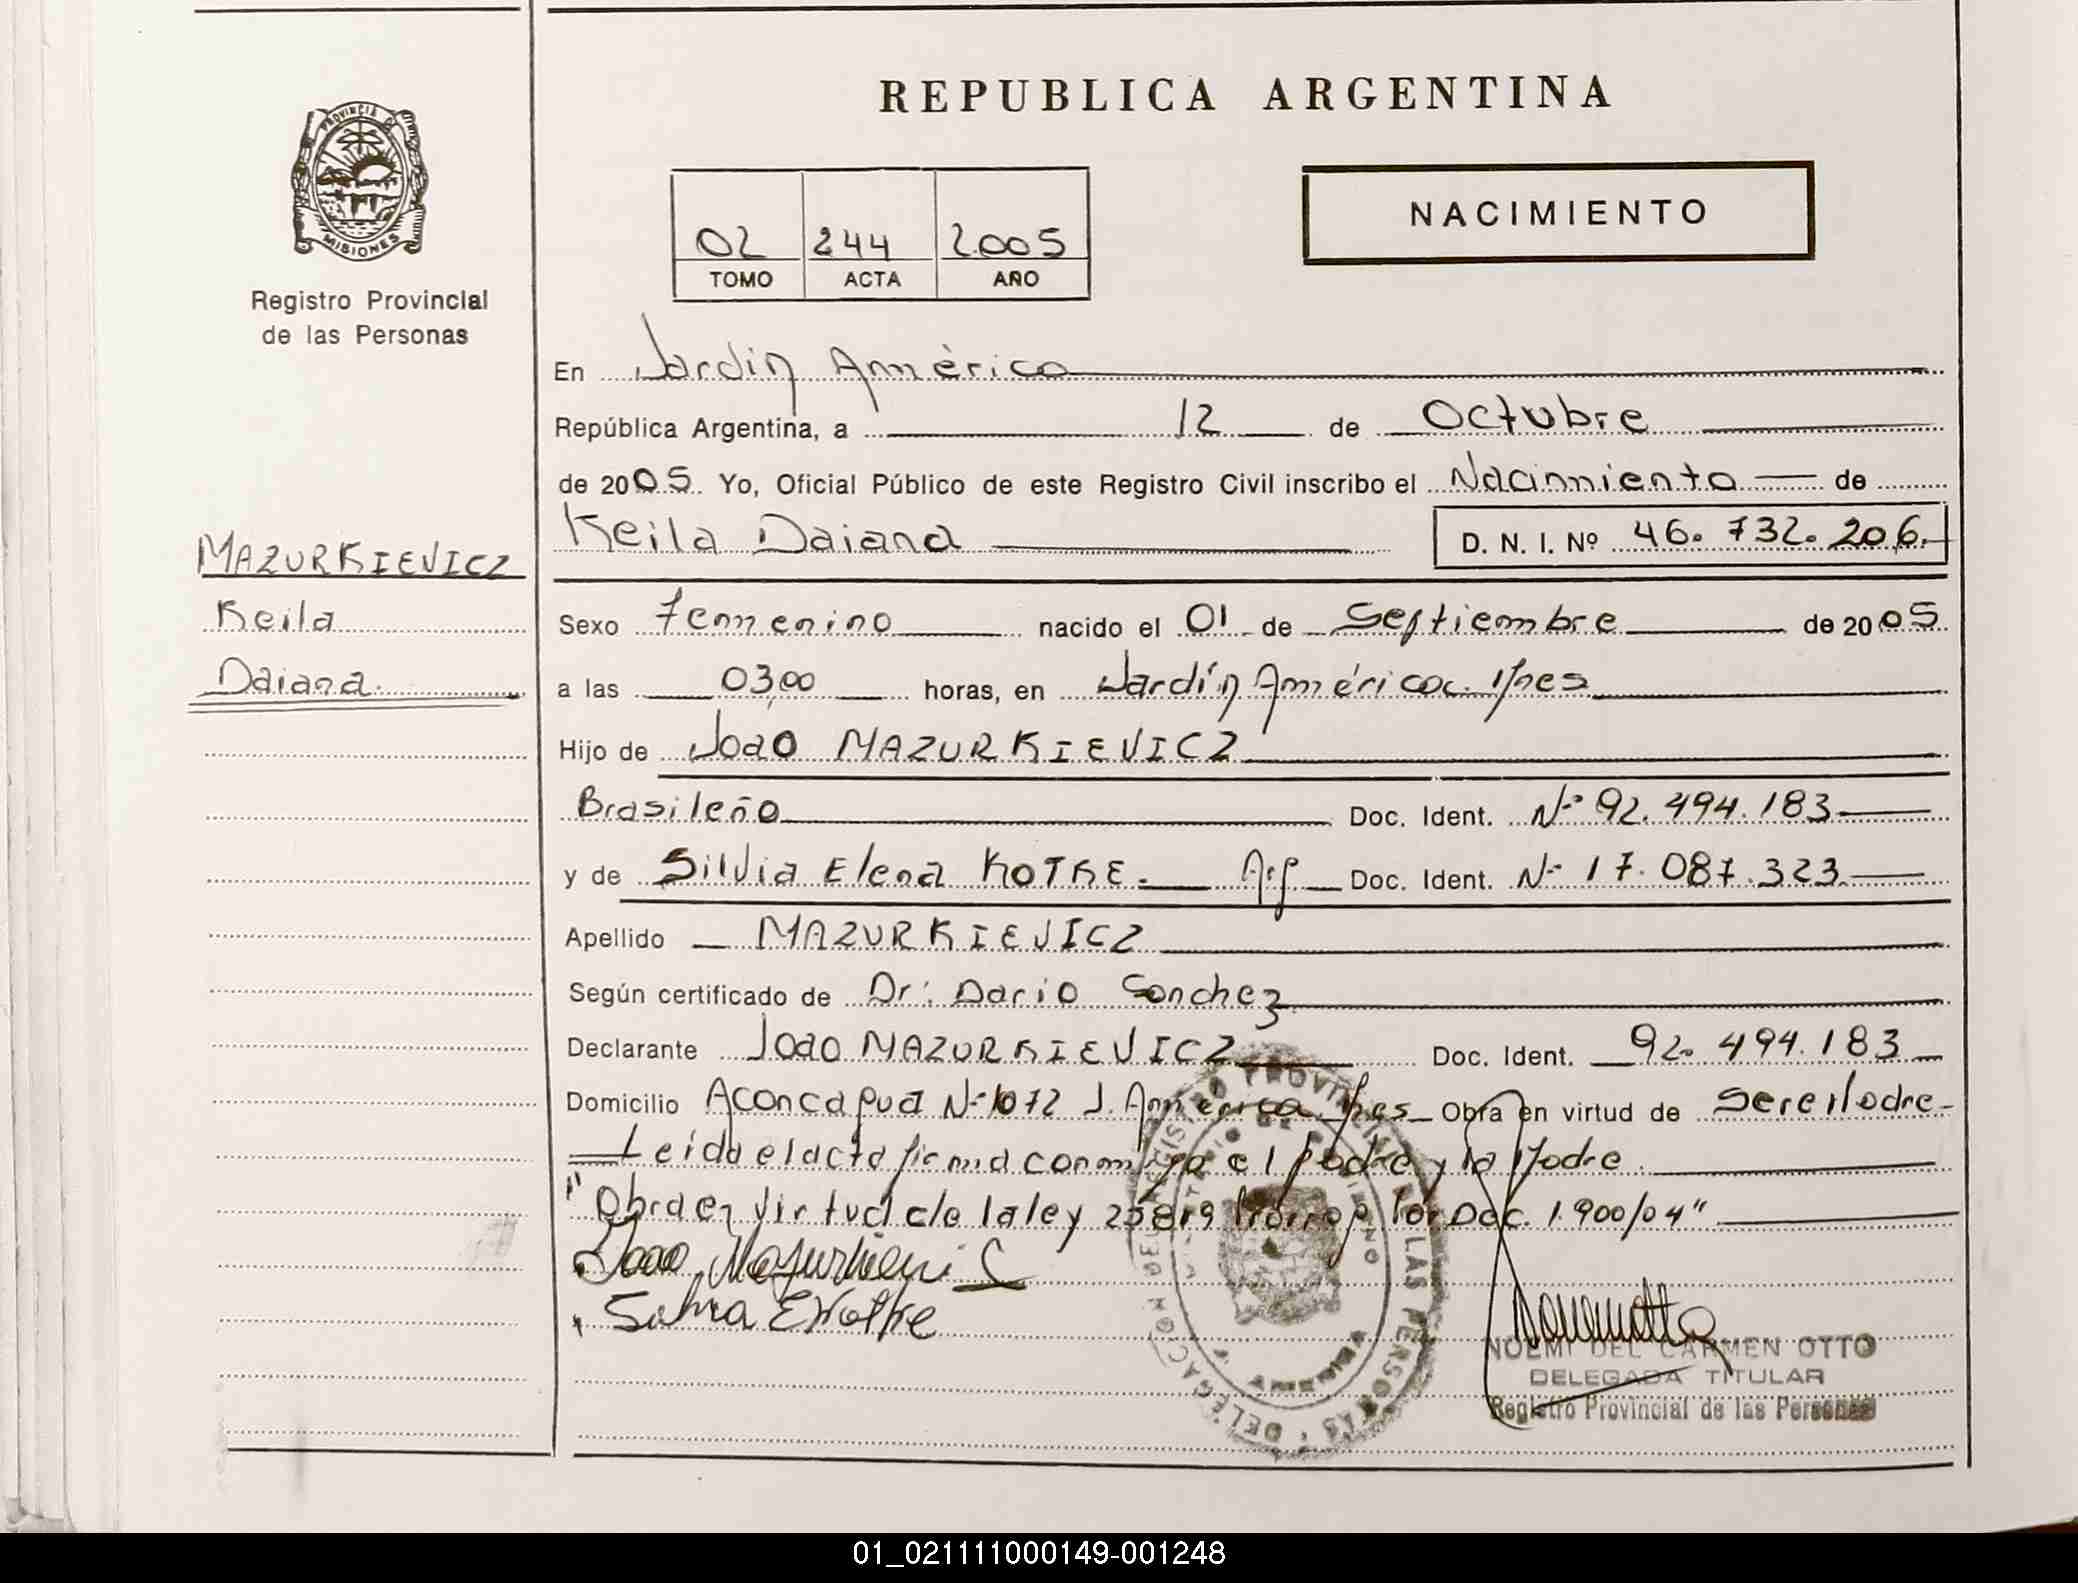 REPUBLICA ARGENTINA
PROVINCIA DE MISIONES
Registro Provincial
de las Personas
02 244 2005
TOMO ACTA AÑO
NACIMIENTO
En Jardín América
República Argentina, a 12 de Octubre
de 2005. Yo, Oficial Público de este Registro Civil inscribo el Nacimiento de
Keila Daiana D. N. I. Nº 46.732.206.
MAZURKIEVICZ
Keila
Daiana.
Sexo Femenino nacido el 01 de Septiembre de 2005
a las 03,00 horas, en Jardín América. Mnes
Hijo de Joao MAZURKIEVICZ
Brasileño Doc. Ident. Nº 92.494.183
y de Silvia Elena KOTKE. Arg Doc. Ident. Nº 17.087.323
Apellido MAZURKIEVICZ
Según certificado de Dr: Dario Sanchez
Declarante Joao MAZURKIEVICZ Doc. Ident. 92.494.183
Domicilio Aconcagua Nº 1072 J. América. Mnes Obra en virtud de ser el Padre
Leida el acta firma conmigo el Padre y la Madre.
"Obra en virtud de la ley 25819 Prorrog por Dec. 1.900/04"
Joao Mazurkievi C
Silvia E Kotke
DELEGACION DEL REGISTRO PROVINCIAL DE LAS PERSONAS
MINISTERIO DE GOBIERNO
NOEMI DEL CARMEN OTTO
DELEGADA TITULAR
Registro Provincial de las Personas
01_021111000149-001248